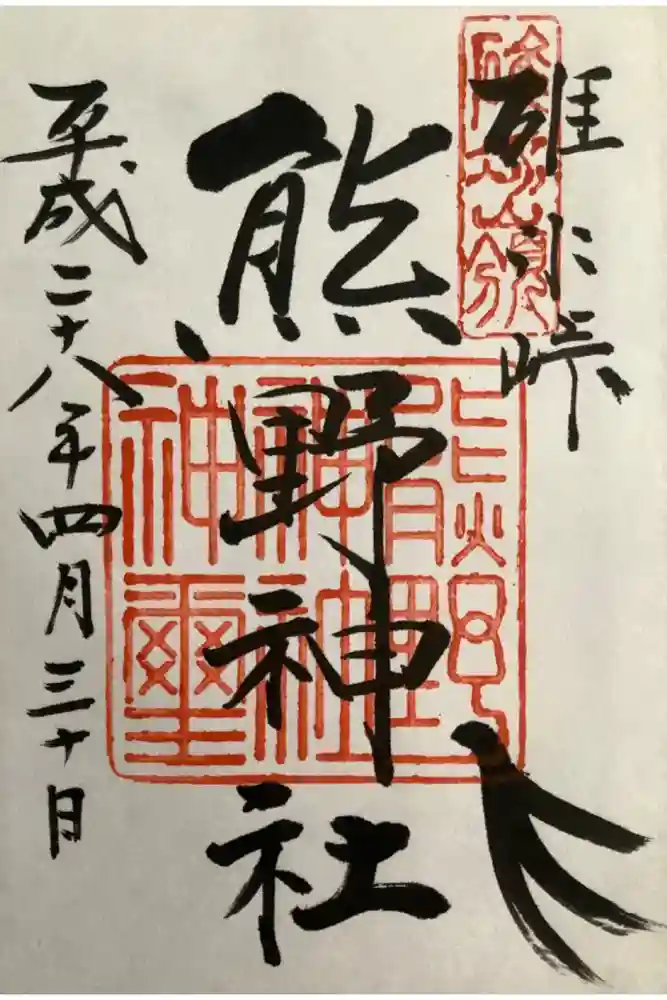 碓氷峠
熊野神社
平成二十八年四月三十日
碓氷嶺
熊野
神社
神璽